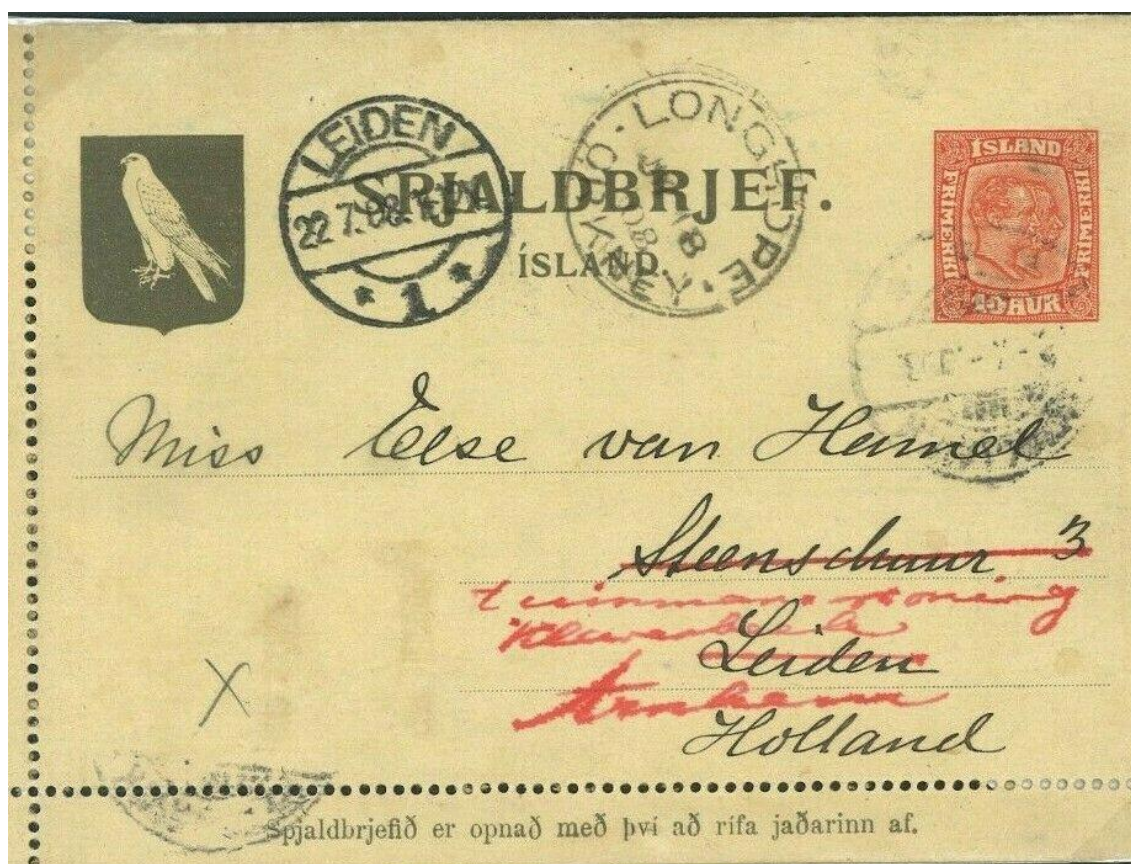 LEIDEN
22 7.08
* 1 *
LONGHOPE · ORKNEY ·
JY 18
08
SPJALDBRJEF.
ÍSLAND.
ÍSLAND
FRIMERKI
FRIMERKI
10 AUR
Miss Else van Hamel
Steenschuur 3
Leiden
Arnhem
Holland
X
Spjaldbrjefið er opnað með því að rífa jaðarinn af.